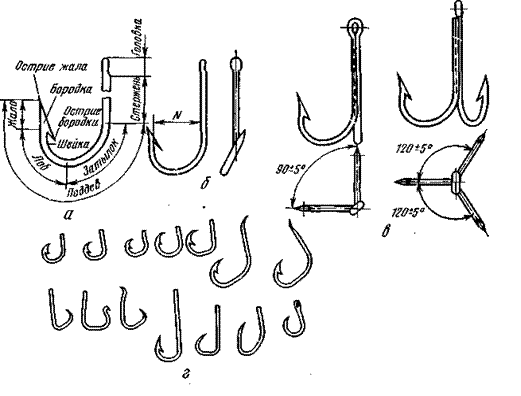 Острие жала
Бородка
Острие
бородки
Шейка
Жало
Лоб
Затылок
Поддев
Головка
Стержень
а
N
б
90±5°
120±5°
120±5°
в
г